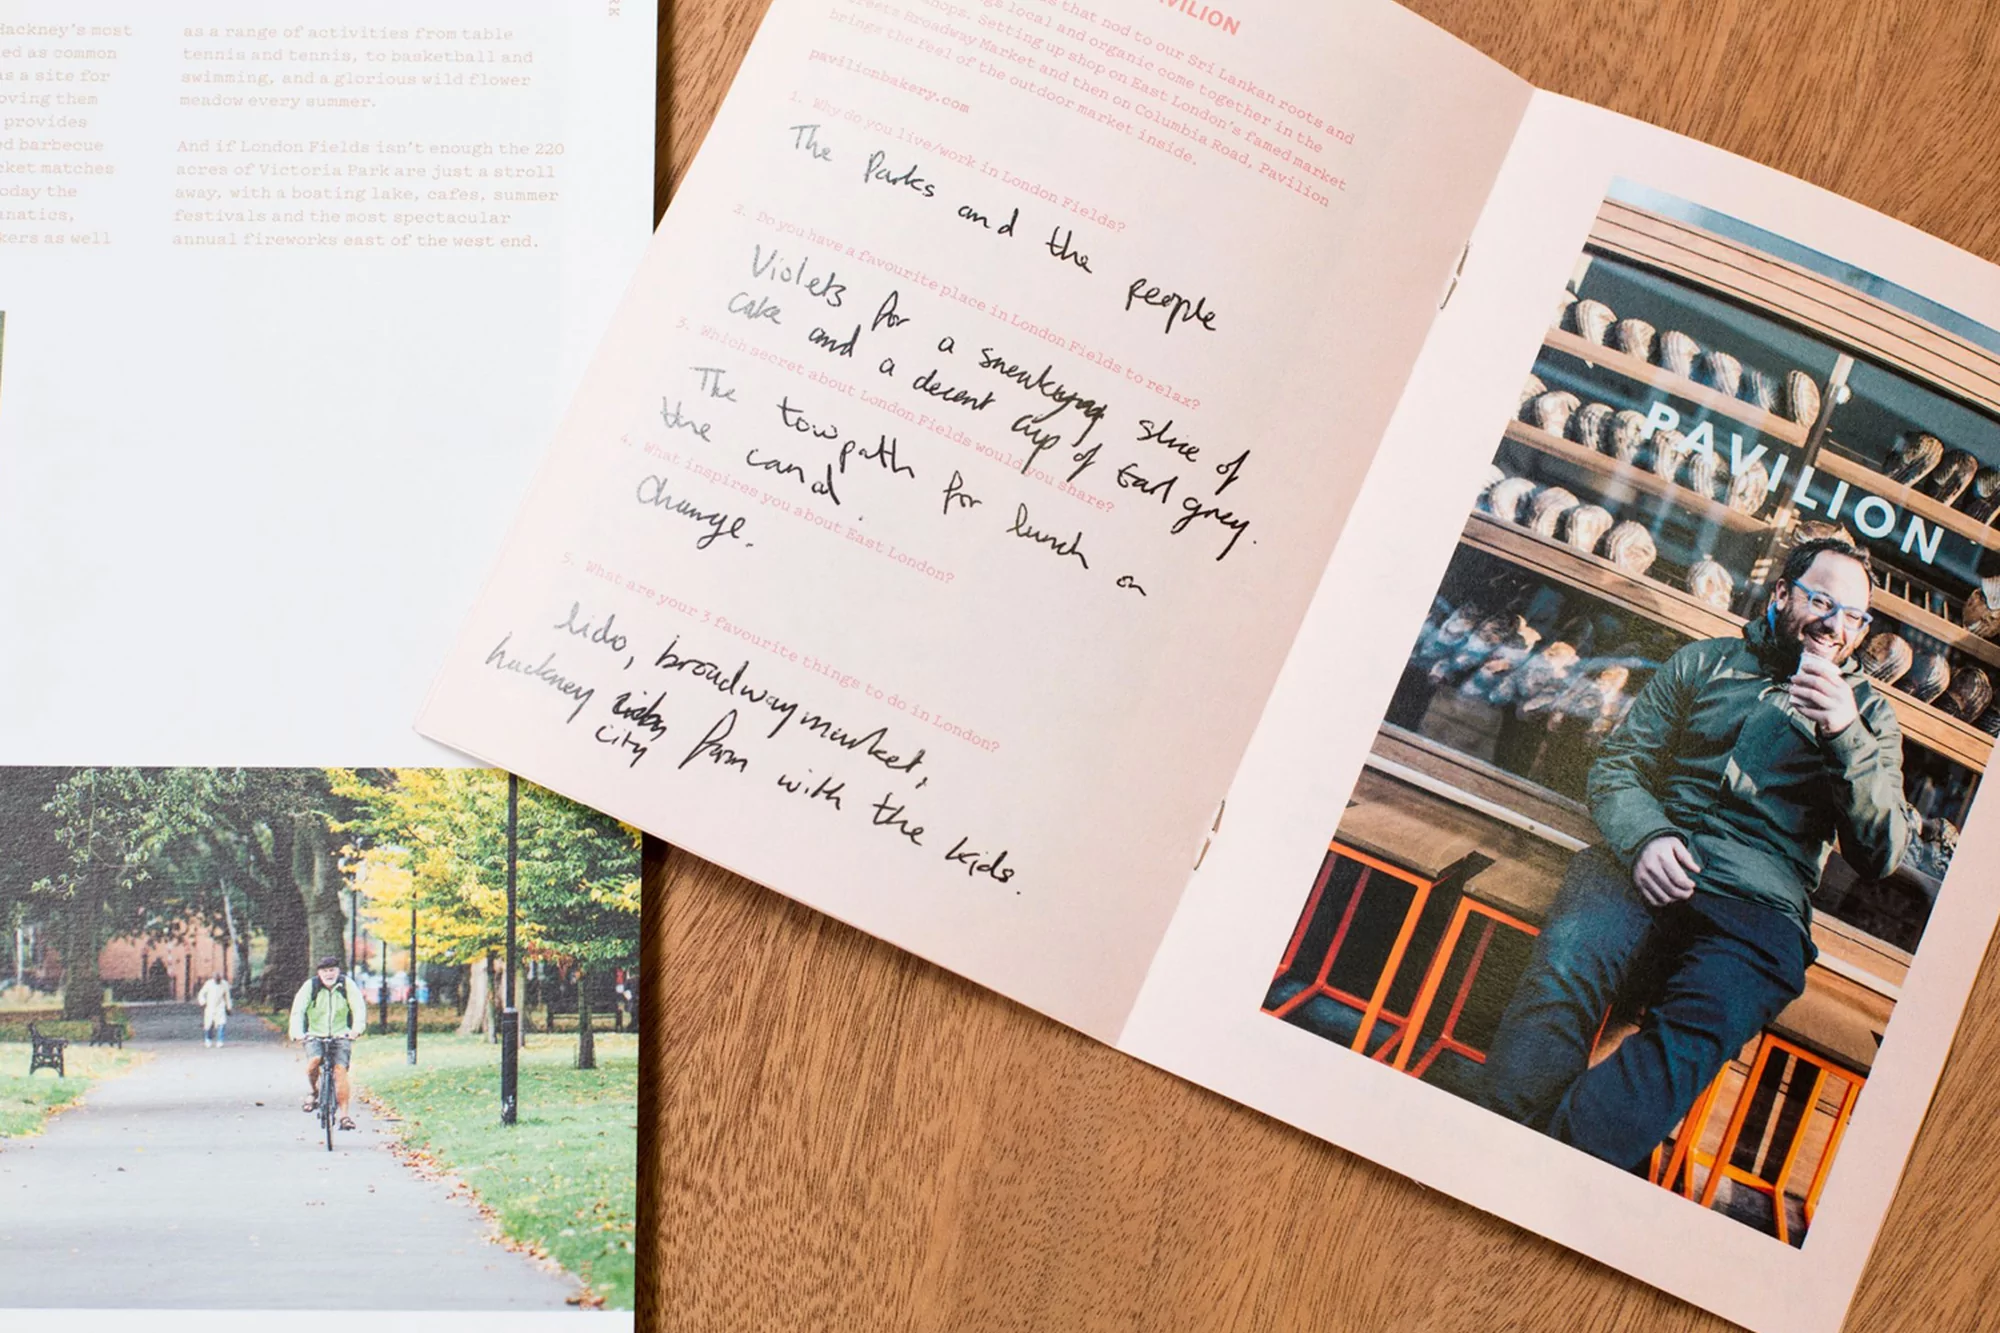 RK
Hackney's most
ed as common
as a site for
oving them
provides
ed barbecue
ket matches
oday the
anatics,
kers as well
as a range of activities from table
tennis and tennis, to basketball and
swimming, and a glorious wild flower
meadow every summer.
And if London Fields isn't enough the 220
acres of Victoria Park are just a stroll
away, with a boating lake, cafes, summer
festivals and the most spectacular
annual fireworks east of the west end.
VILION
s that nod to our Sri Lankan roots and
ngs local and organic come together in the
shops. Setting up shop on East London's famed market
streets Broadway Market and then on Columbia Road, Pavilion
brings the feel of the outdoor market inside.
pavilionbakery.com
1. Why do you live/work in London Fields?
The Parks and the people
2. Do you have a favourite place in London Fields to relax?
Violets for a slice of
cake and a decent cup of Earl grey.
3. Which secret about London Fields would you share?
The towpath for lunch on
the canal.
4. What inspires you about East London?
Change.
5. What are your 3 favourite things to do in London?
lido, broadway market,
hackney farm with the kids.
city
PAVILION